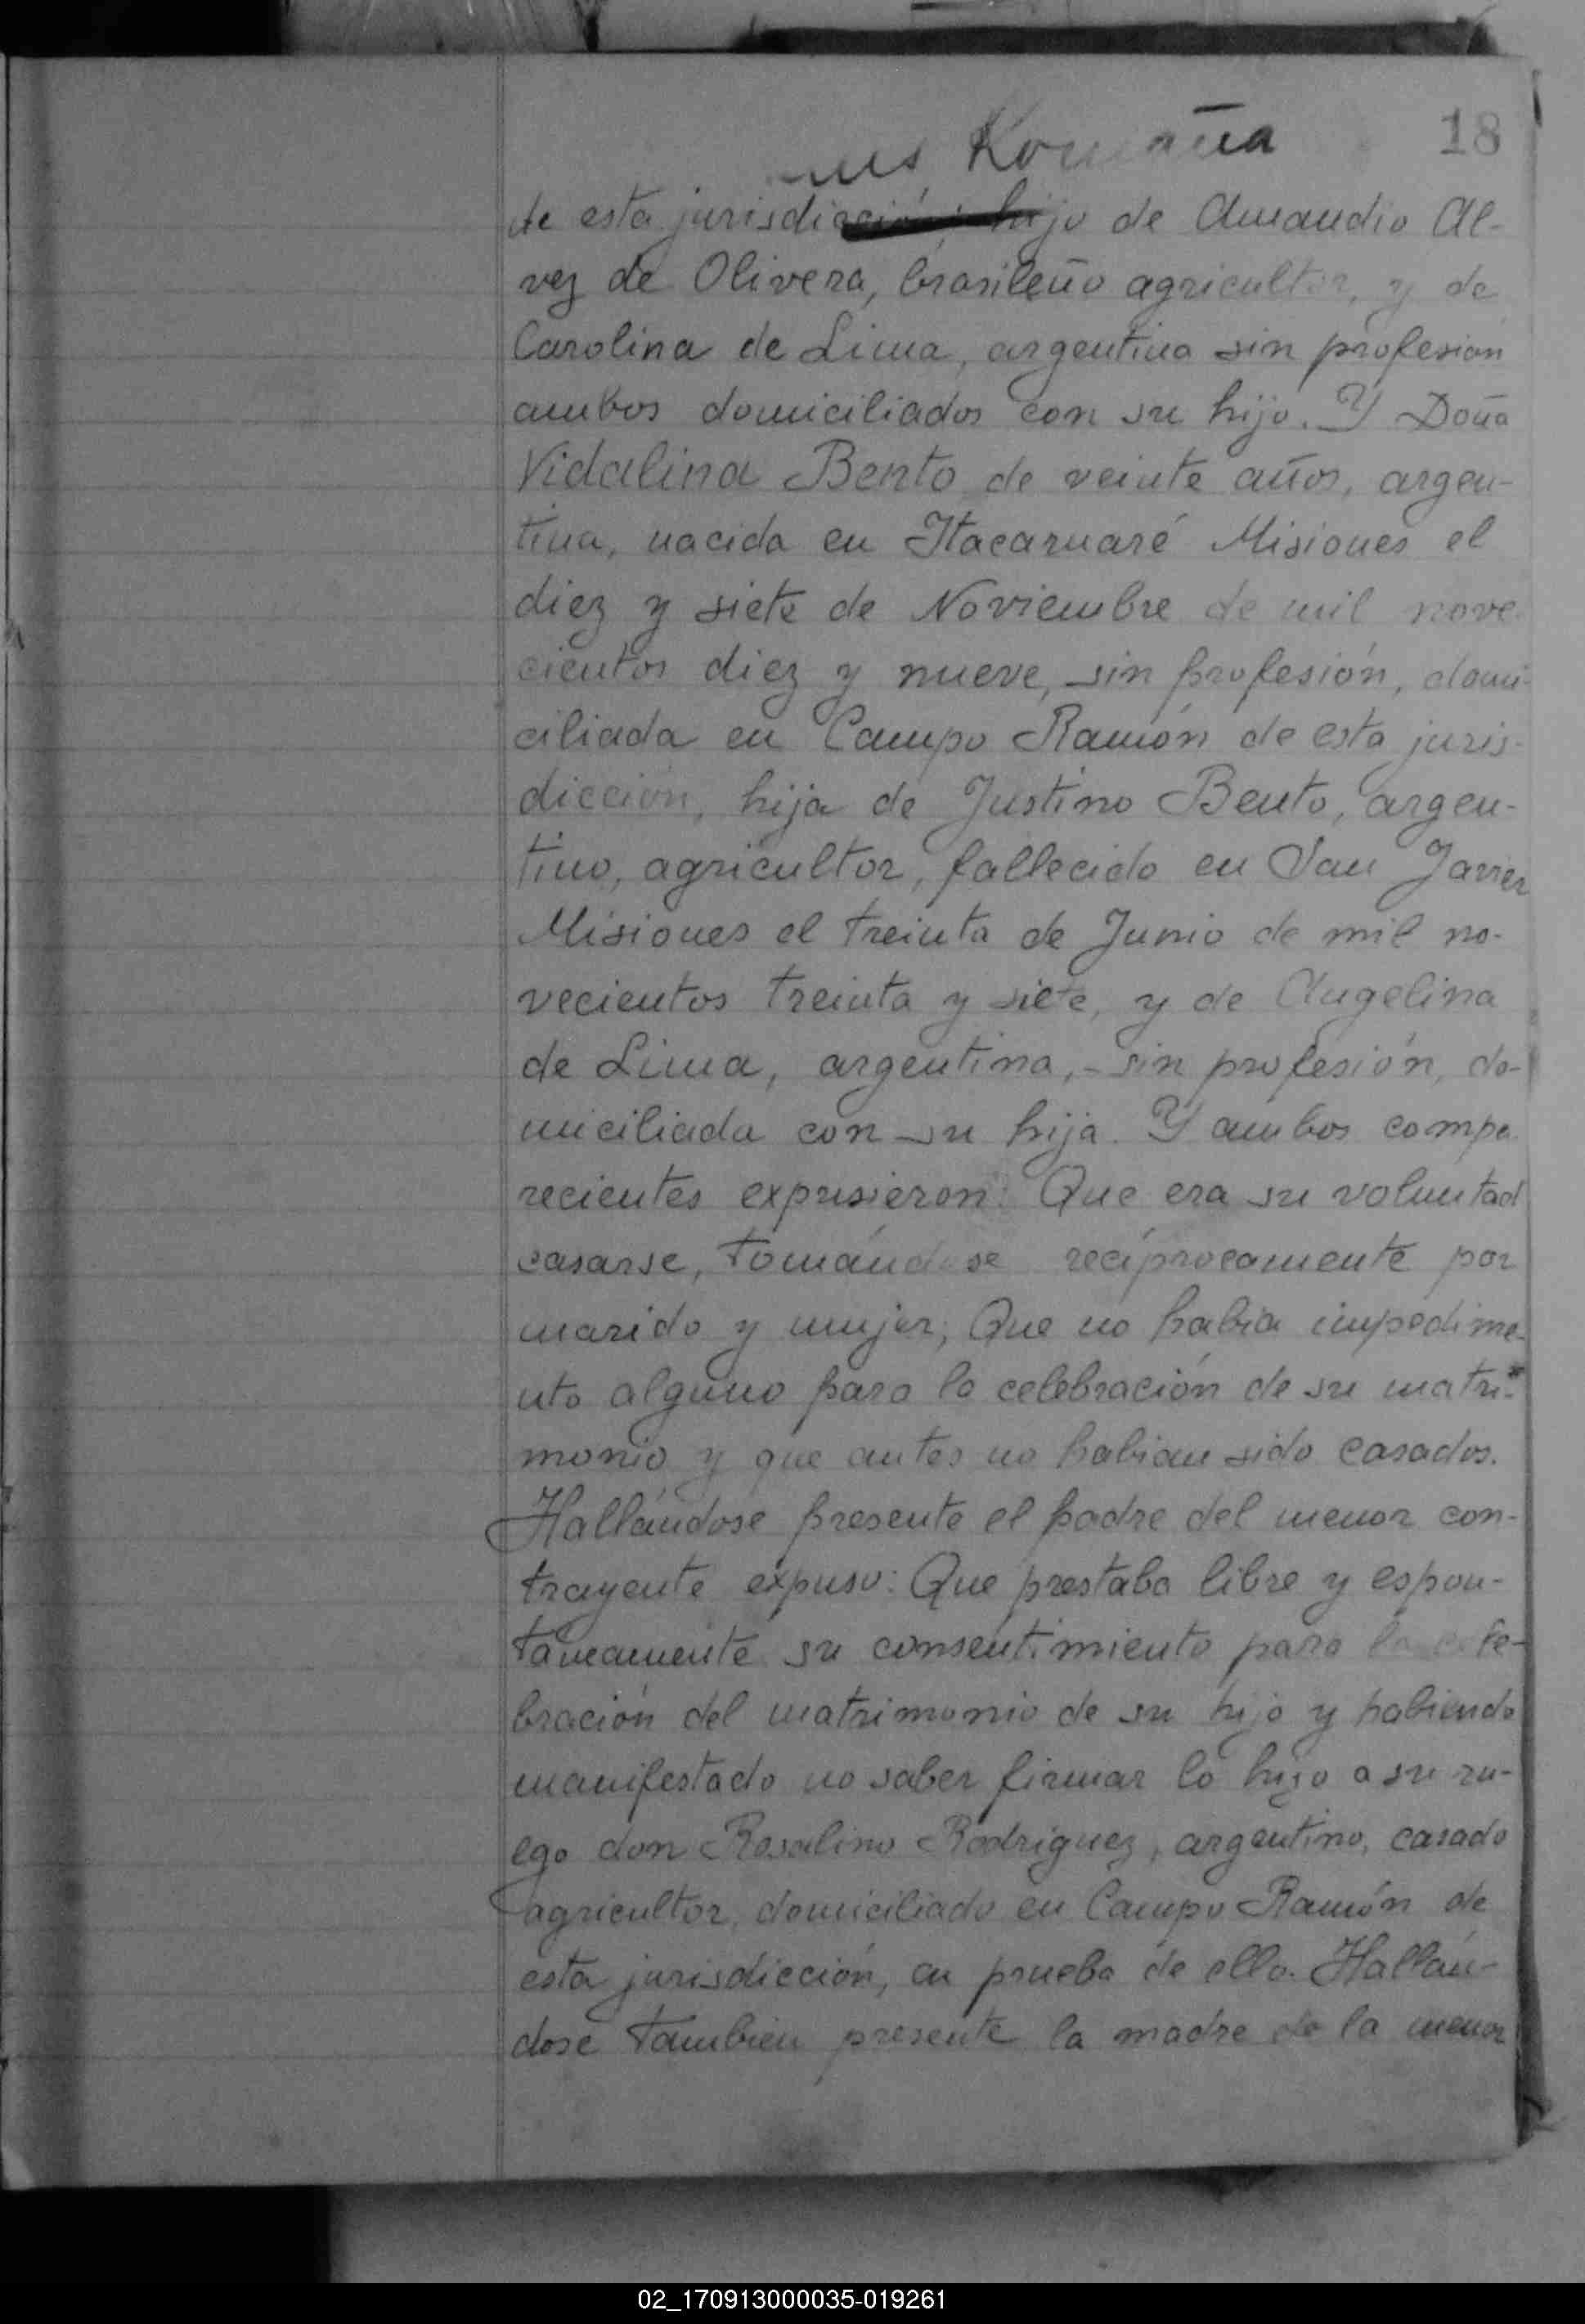 18
de esta jurisdicción, hijo de Amandio Al-
vez de Olivera, brasileño agricultor, y de
Carolina de Lima, argentina sin profesión
ambos domiciliados con su hijo. Y Doña
Vidalina Bento de veinte años, argen-
tina, nacida en Itacaruaré Misiones el
diez y siete de Noviembre de mil nove
cientos diez y nueve, sin profesión, domi-
ciliada en Campo Ramón de esta juris-
dicción, hija de Justino Bento, argen-
tino, agricultor, fallecido en San Javier
Misiones el treinta de Junio de mil no-
vecientos treinta y siete, y de Angelina
de Lima, argentina, - sin profesión, do-
miciliada con su hija. Y ambos compa
recientes expusieron: Que era su voluntad
casarse, tomándose recíprocamente por
marido y mujer; Que no habia impedime-
nto alguno para la celebración de su matri-
monio y que antes no habian sido casados.
Hallándose presente el padre del menor con-
trayente expuso: Que prestaba libre y espon-
taneamente su consentimiento para la cele-
bración del matrimonio de su hijo y habiendo
manifestado no saber firmar lo hizo a su ru-
ego don Rosalino Rodriguez, argentino, casado
agricultor, domiciliado en Campo Ramón de
esta jurisdicción, en prueba de ello. Hallán-
dose tambien presente la madre de la menor
02_170913000035-019261